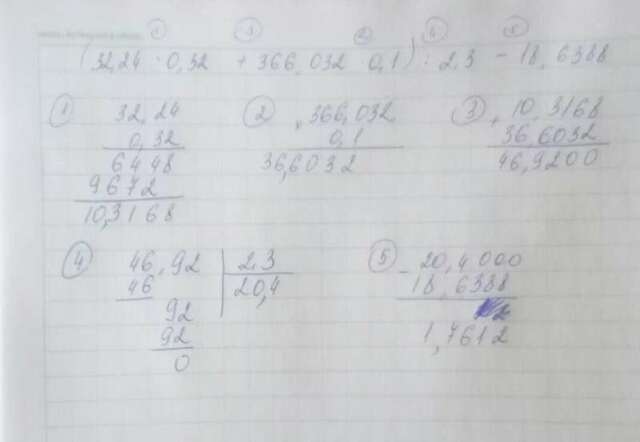 ① ③ ② ④ ⑤
(32,24 · 0,32 + 366,032 · 0,1) : 2,3 - 18,6388
① 32,24
0,32
6448
9672
10,3168
② 366,032
0,1
36,6032
③ 10,3168
36,6032
46,9200
④ 46,92 2,3
46 20,4
92
92
0
⑤ - 20,4000
18,6388
1,7612